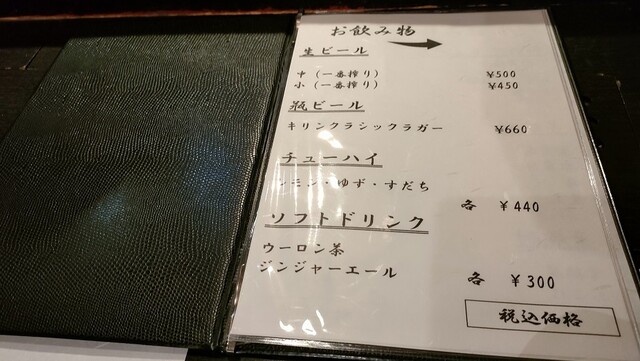 お飲み物
生ビール
中（一番搾り） ¥500
小（一番搾り） ¥450
瓶ビール
キリンクラシックラガー ¥660
チューハイ
レモン・ゆず・すだち
各 ¥440
ソフトドリンク
ウーロン茶
ジンジャーエール
各 ¥300
税込価格